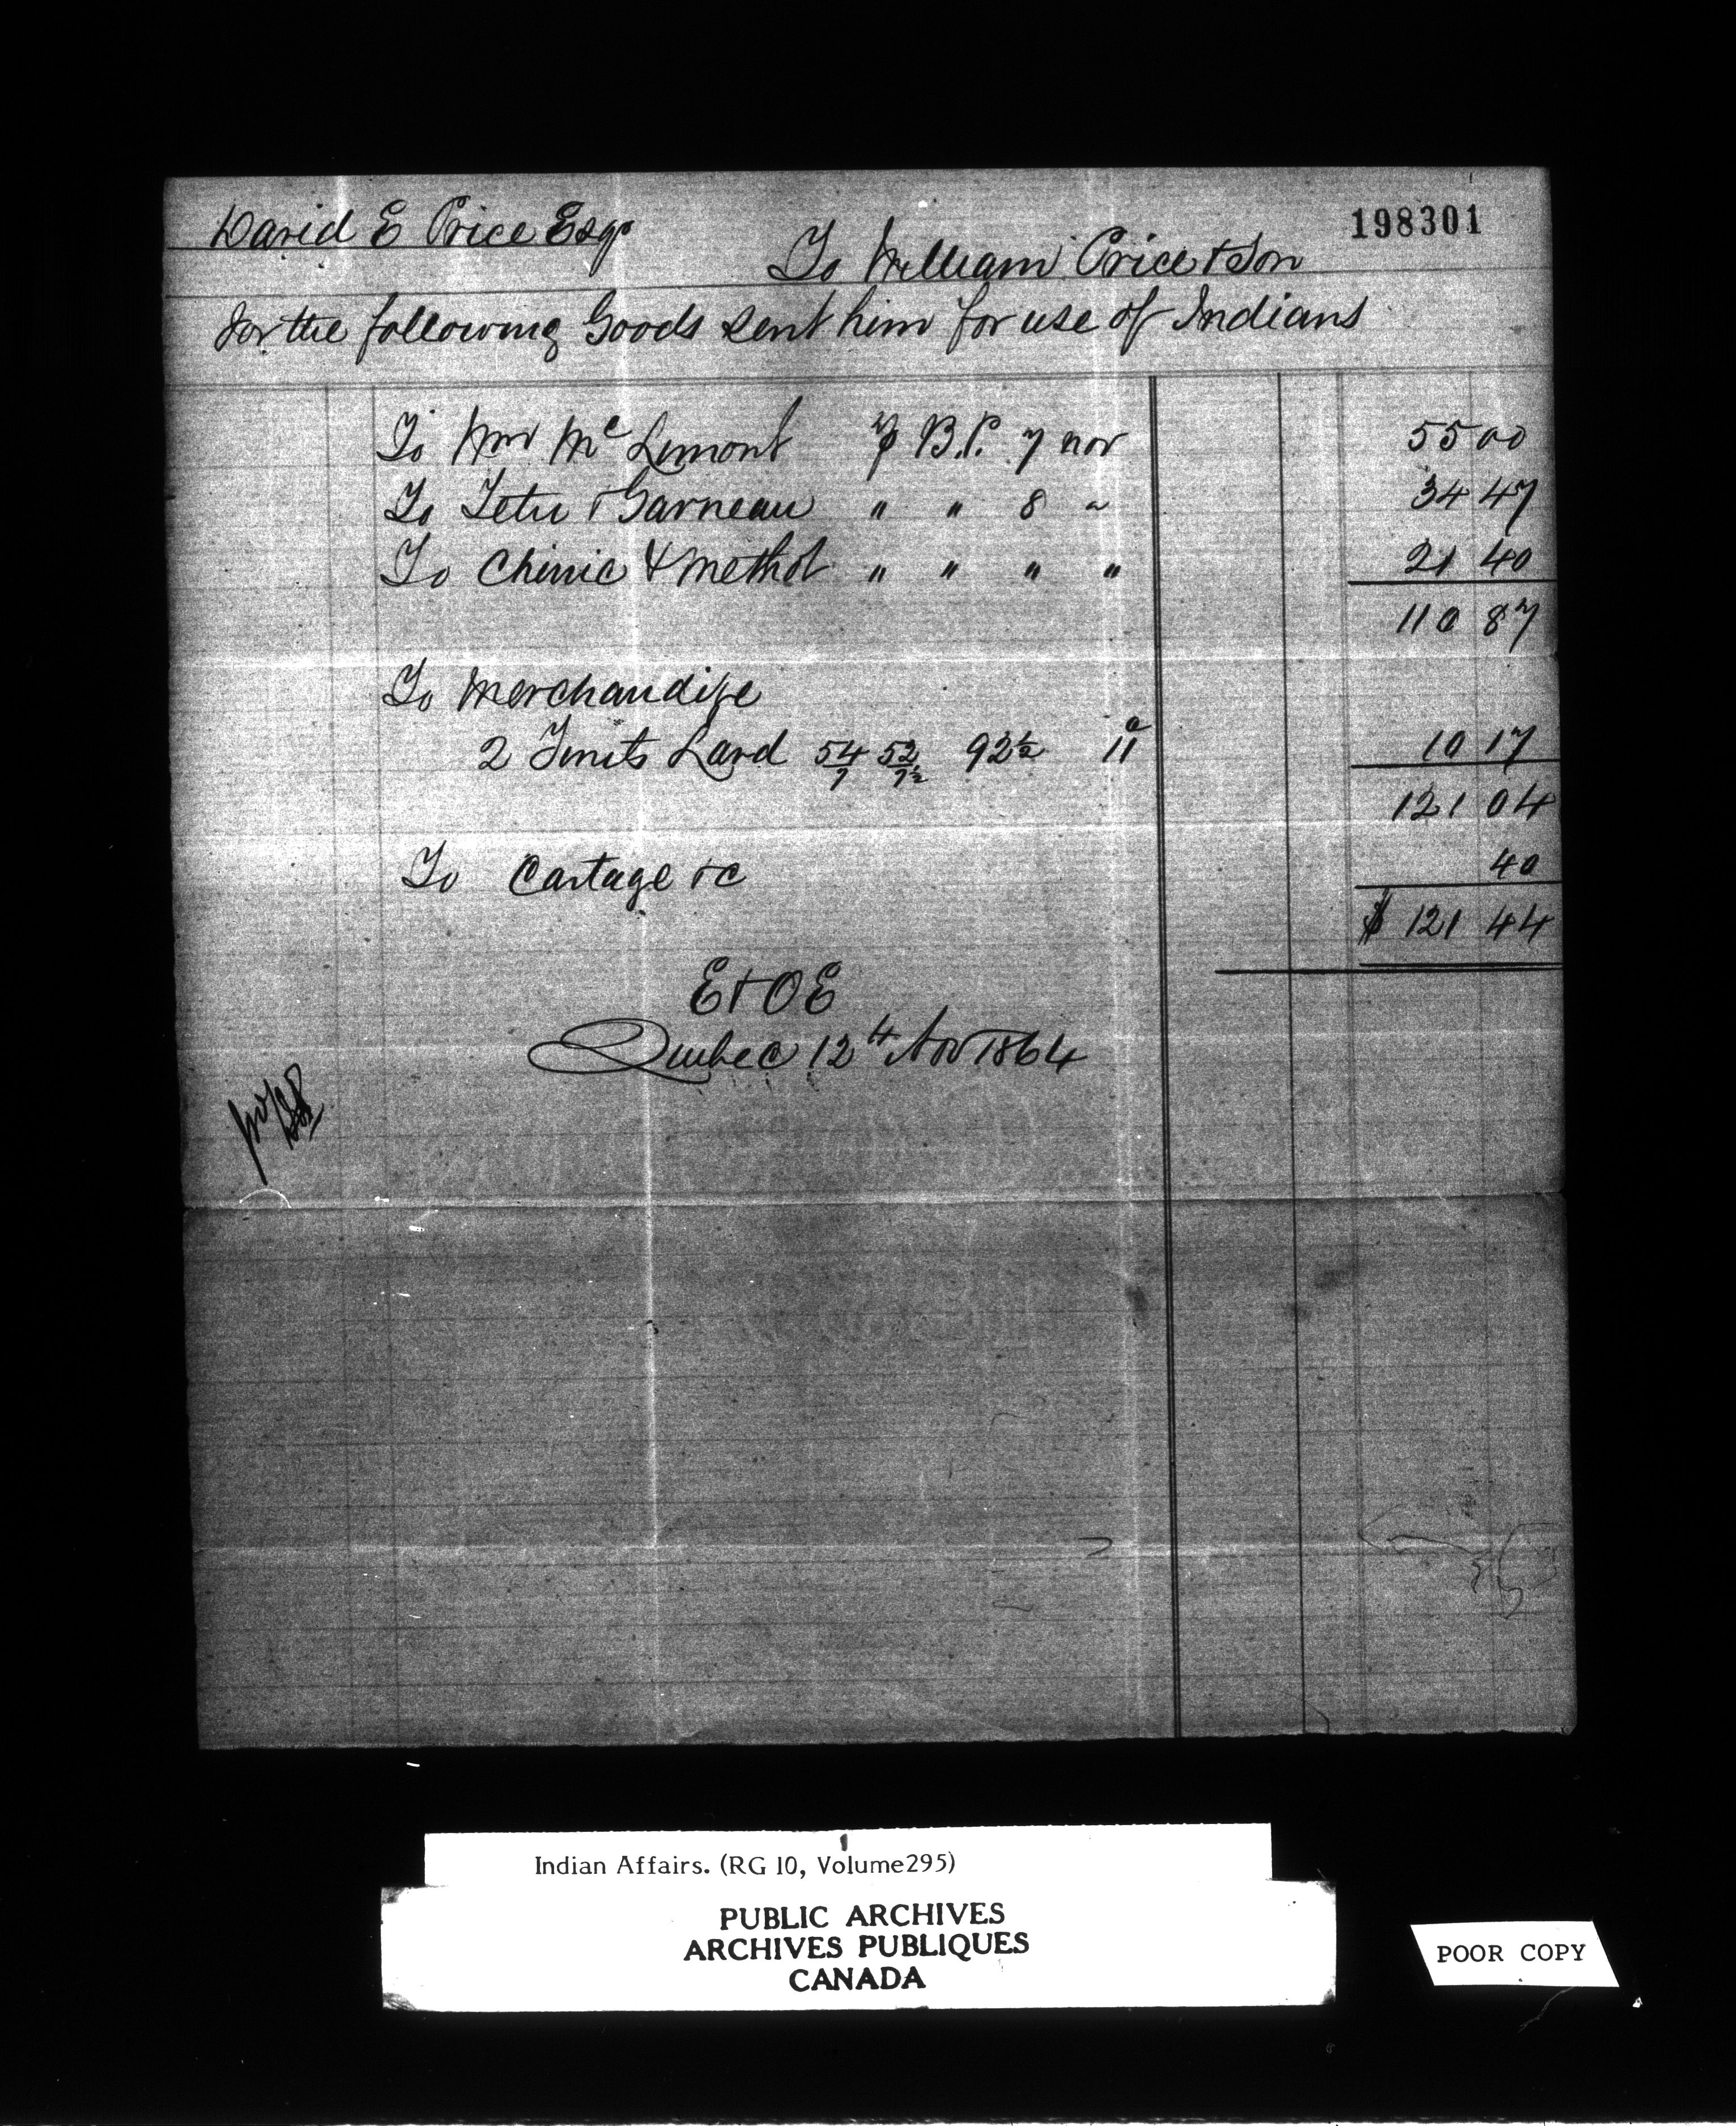 198301
David E Price Esqr
To William Price & Son
For the following Goods sent him for use of Indians
To Wm Mc Limont ⅌ B.P. 7 Nov 55 00
To Tetu & Garneau " " 8 " 34 47
To Chinic & Methot " " " " 21 40
110 87
To Merchandize
2 Tinits Lard 54/7 52/7½ 92½ 11 10 17
121 04
To Cartage &c 40
$ 121 44
E & O E
Quebec 12th Nov 1864
Indian Affairs. (RG 10, Volume295)
PUBLIC ARCHIVES
ARCHIVES PUBLIQUES
CANADA
POOR COPY